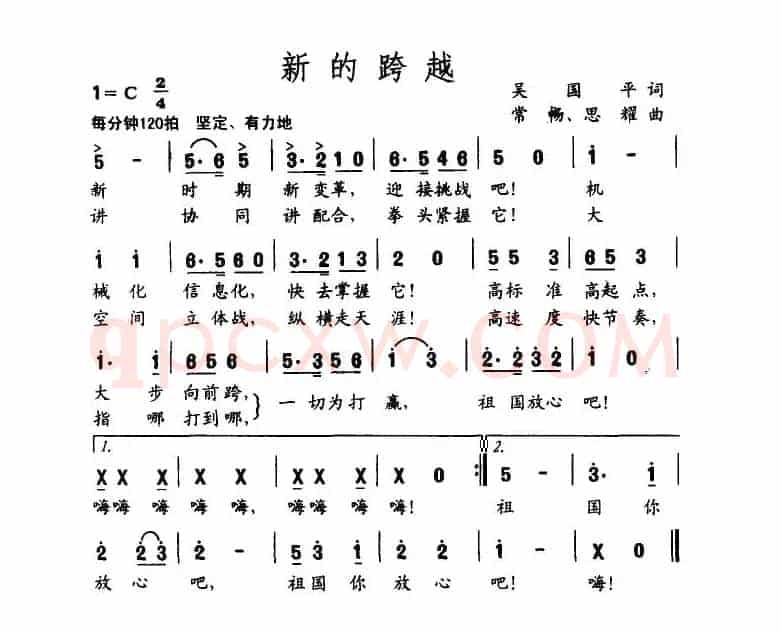 新的跨越
1=C 2/4
吴国平词
常畅、思耀曲
每分钟120拍 坚定、有力地
5 - | 5· 6 5 | 3· 2 1 0 | 6· 5 4 6 | 5 0 | i -
新 时 期 新 变革， 迎 接挑战 吧！ 机
讲 协 同 讲 配合， 拳 头紧握 它！ 大
i i | 6· 5 6 0 | 3· 2 1 3 | 2 0 | 5 5 3 | 6 5 3
械 化 信 息化， 快 去掌握 它！ 高标 准 高起 点，
空 间 立 体战， 纵 横走天 涯！ 高速 度 快节 奏，
i· i | 6 5 6 | 5· 3 5 6 | i 3 | 2· 2 3 2 | i 0
大 步 向前 跨， 一 切为打 赢， 祖 国放心 吧！
指 哪 打到 哪，
1. 2.
X X X | X X X | X X X | X 0 :| 5 - | 3· i
嗨嗨 嗨 嗨嗨 嗨， 嗨嗨 嗨 嗨！ 祖 国 你
2 2 3 | 2 - | 5 3 i | 2 2 | i - | X 0
放 心 吧， 祖国 你 放 心 吧！ 嗨！
qpcxw.com